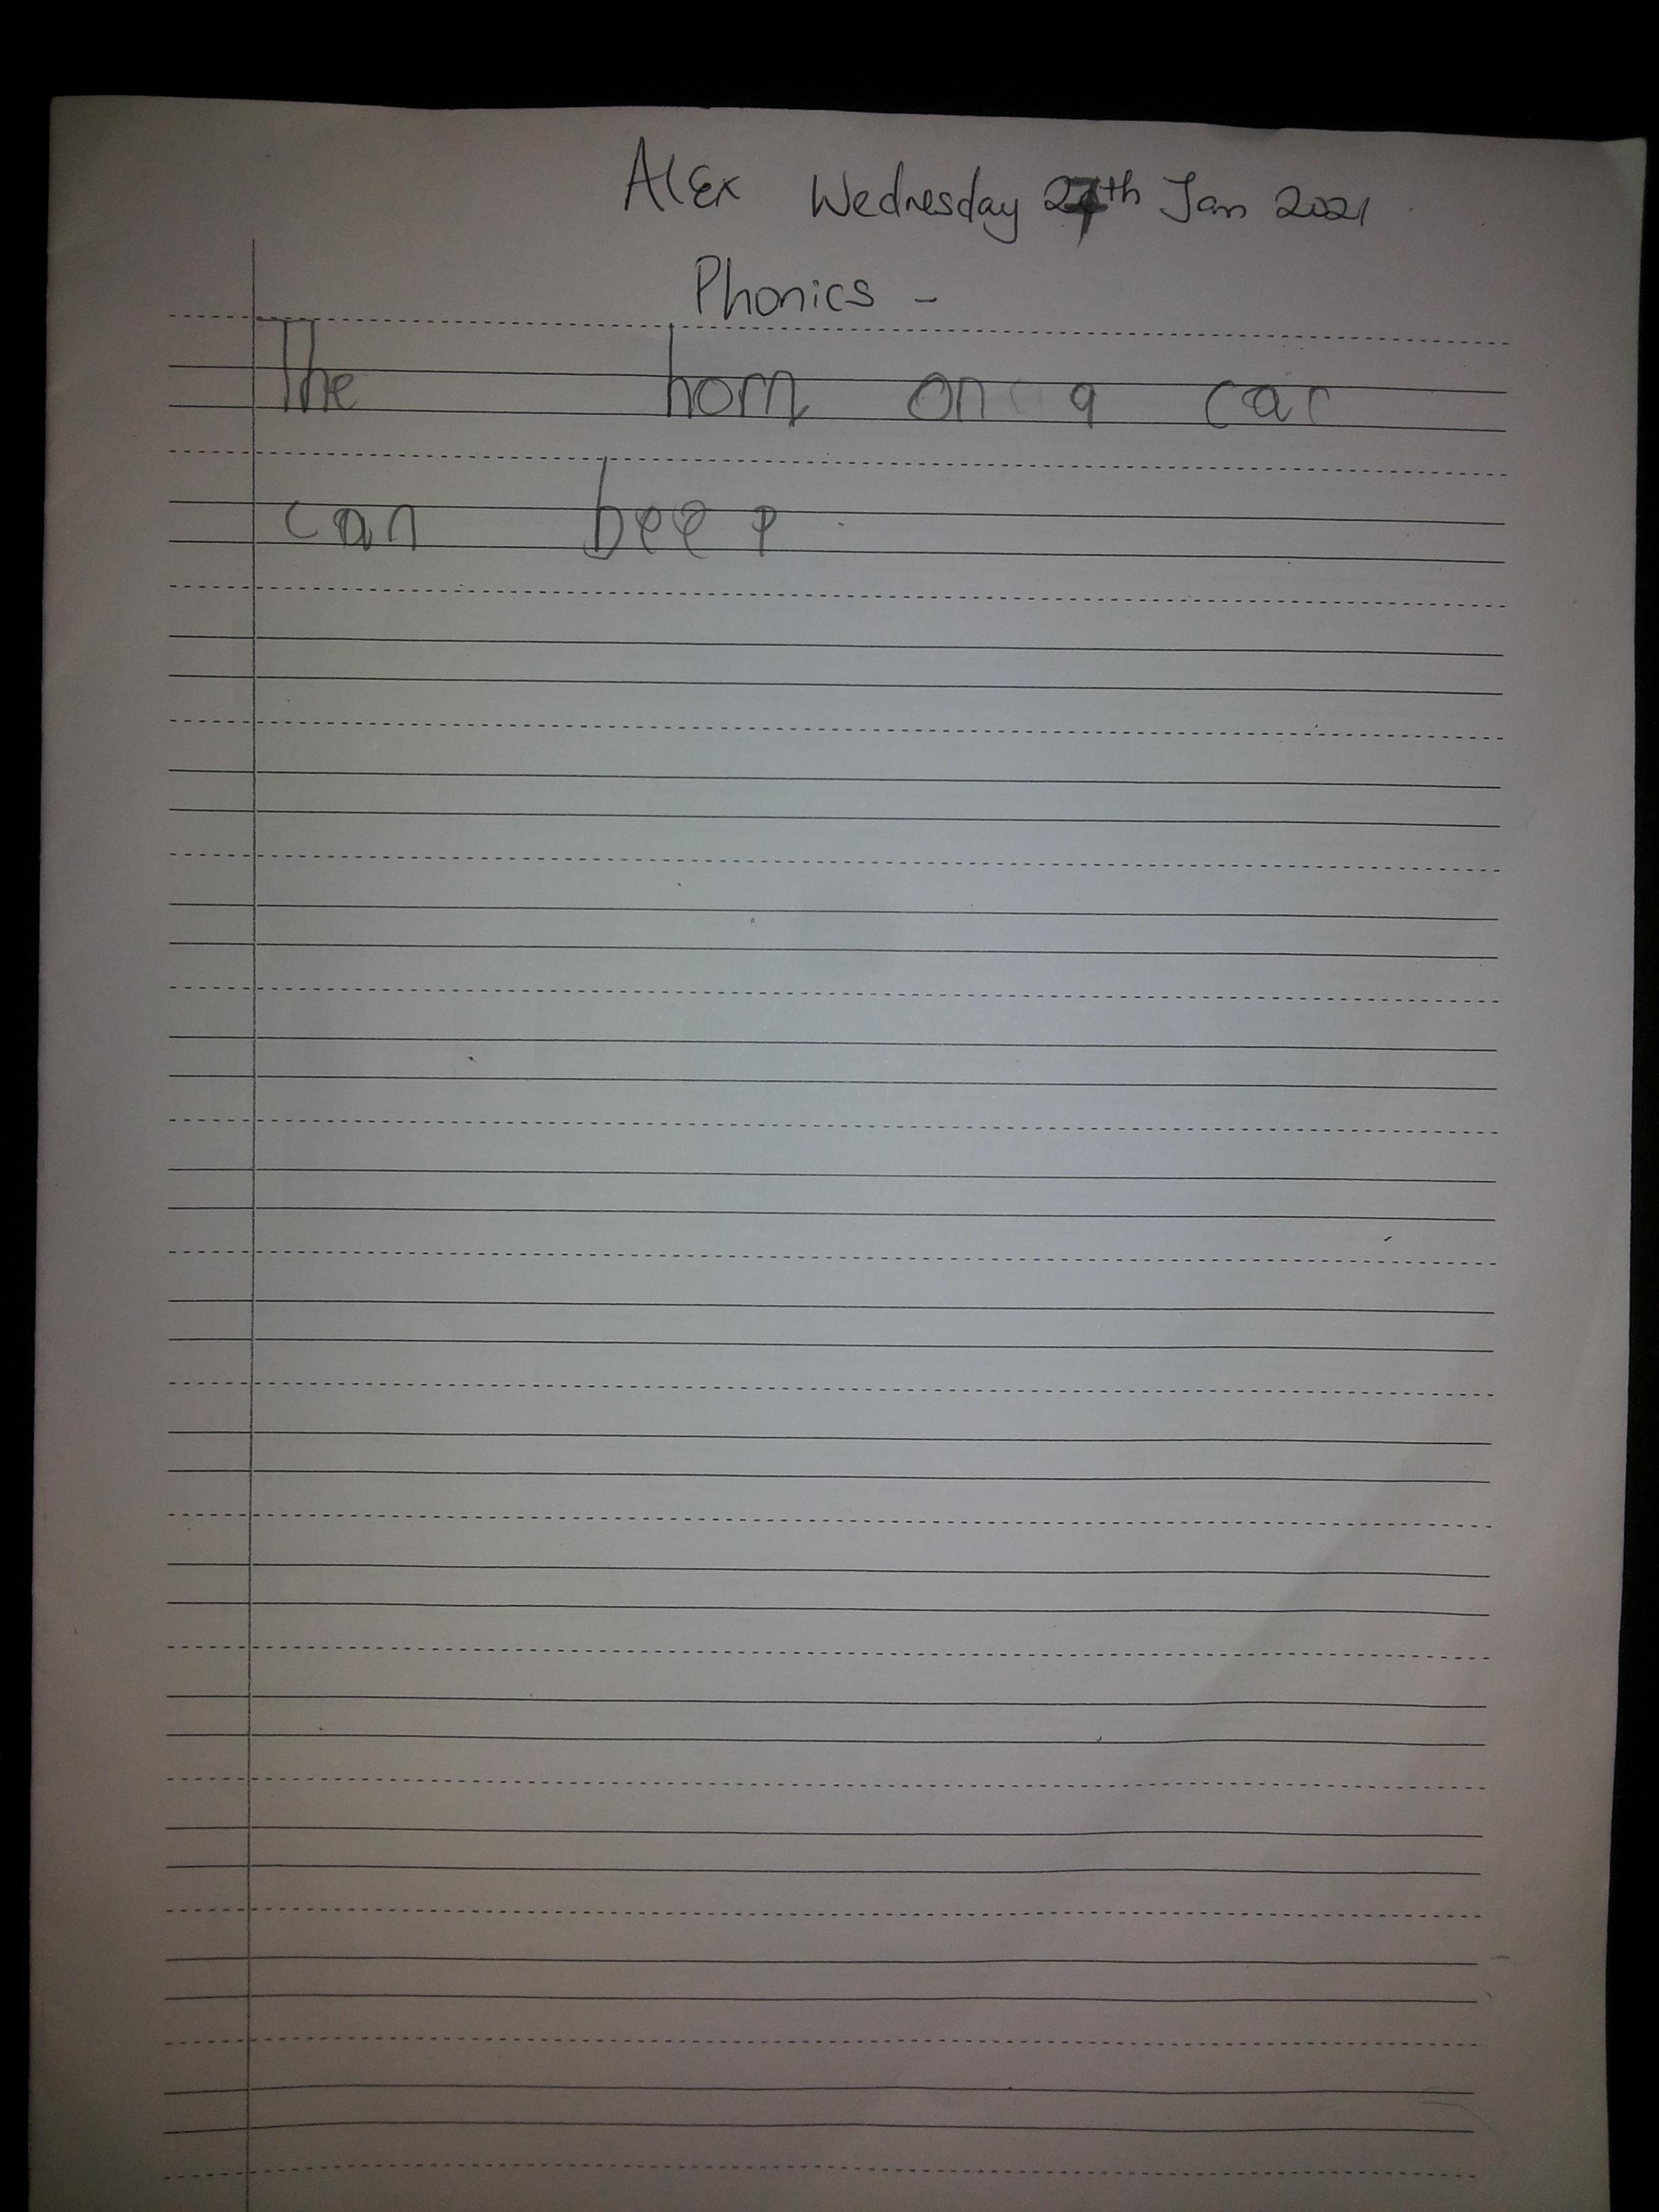 Alex Wednesday 27th Jan 2021
Phonics -
The horn on a car
can beep.